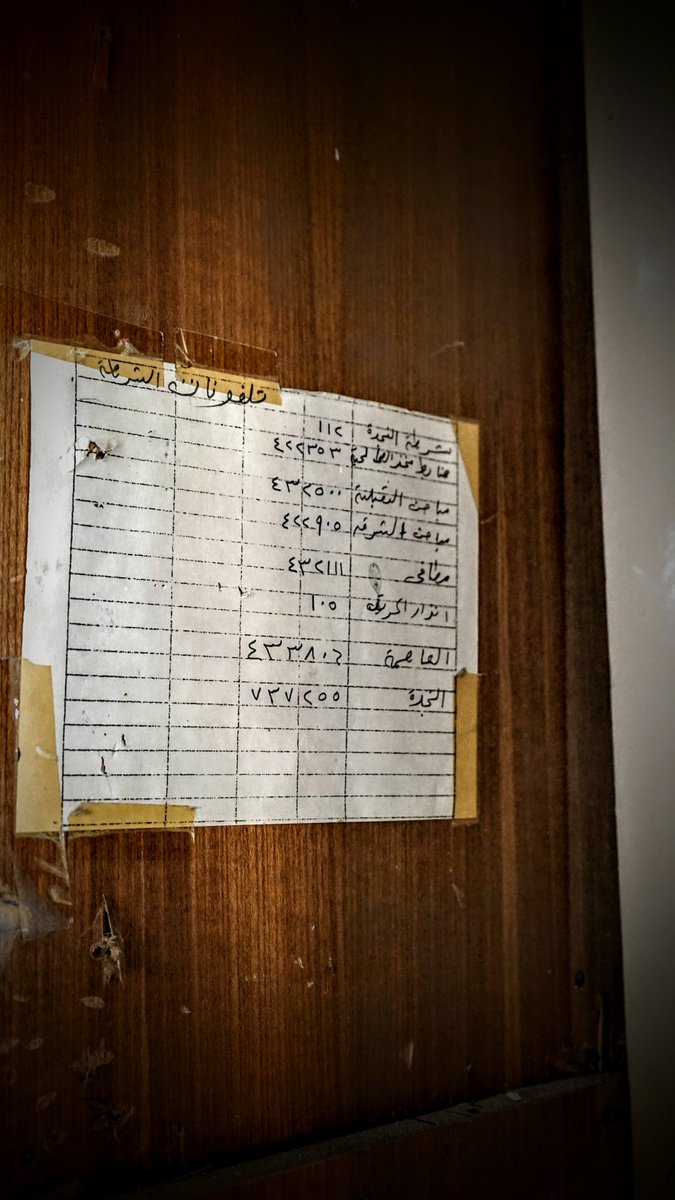 تلفونات الشرطة
شرطة النجدة ١١٢
ضابط ٤٢٢٣٥٣
مباحث القبلية ٤٣٢٥٠٠
مباحث الشرقية ٤٢٢٩٠٥
مطافى ٤٣٢١١١
انذار الحريق ١٠٥
العاصمة ٤٣٣٨٠٦
النجدة ٧٣٧٢٥٥